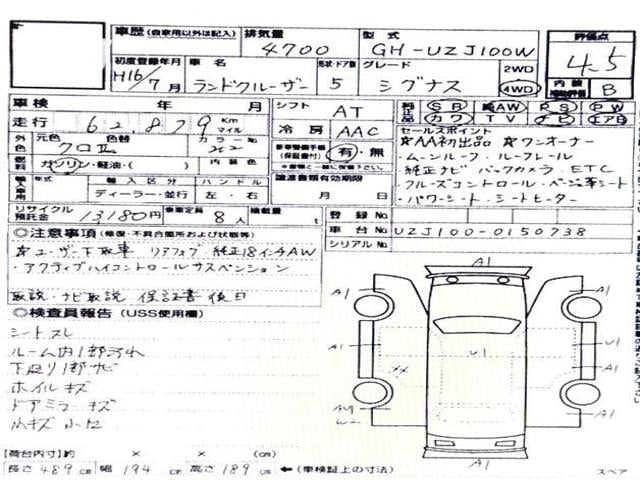 車歴 (自家用以外は記入) 排気量 型式 評価点
4700 GH-UZJ100W 4.5
初度登録年月 車名 形状・ドア数 グレード 2WD 4WD 内装 補助評価 B
H16/7月 ランドクルーザー 5 シグナス
車検 年 月 シフト AT SB 純AW PS PW
走行 62,879 Km マイル 冷房 AAC カワ TV ナビ エアB
外 元色 色替 カラーNo セールスポイント
クロ 202 有・無 ☆AA初出品 ☆ワンオーナー
燃料 ガソリン・軽油・( ) 内装色 ・ムーンルーフ・ルーフレール
輸入車用 年式 輸入区分 ハンドル 譲渡書類有効期限 ・純正ナビ バックカメラ・ETC
ディーラー・並行 左・右 月 日 ・クルーズコントロール・ベージュ革シート
・パワーシート・シートヒーター
リサイクル預託金 13180円 乗車定員 8人 積載量 t 登録No
車台No UZJ100-0150738
シリアルNo
◎注意事項 (修復・不具合箇所および状態等)
☆ユーザー下取車 リアフォグ 純正18インチAW
・アクティブハイコントロールサスペンション
取説・ナビ取説 保証書 後日
◎検査員報告 (USS使用欄)
シートスレ
ルーム内1部汚れ
下廻り1部サビ
ホイルキズ
ドアミラーキズ
小キズ 小エ
A1
A1 A1
A1 U1 U1
××
A1
W2
A1
(荷台内寸)約 × × (cm)
長さ 489 cm 幅 194 cm 高さ 189 cm ←(車検証上の寸法) スペア